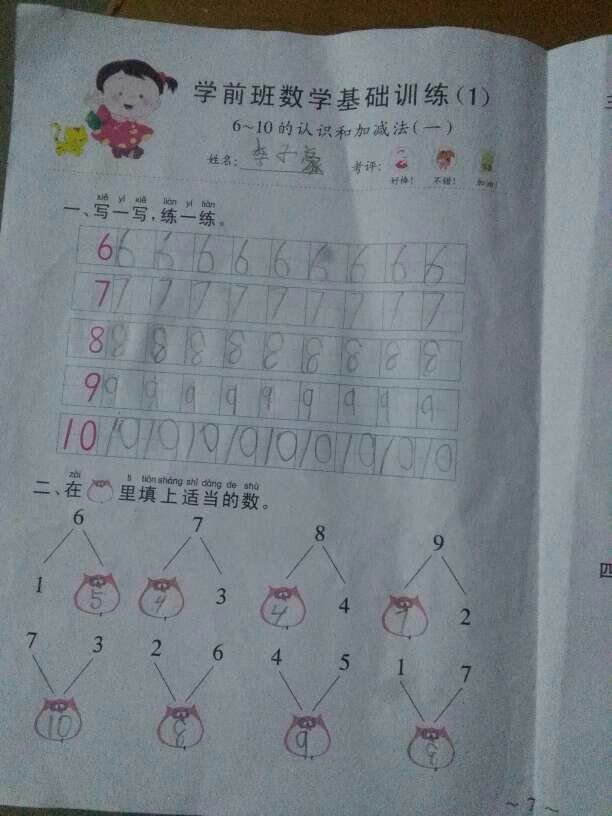 学前班数学基础训练(1)
6~10的认识和加减法(一)
姓名: 李 考评: 好棒! 不错! 加油!
xiě yì xiě liàn yí liàn
一、写一写,练一练。
6 6 6 6 6 6 6 6 6 6
7 7 7 7 7 7 7 7 7 7
8 8 8 8 8 8 8 8 8 8
9 9 9 9 9 9 9 9 9 9
10 10 10 10 10 10 10 10 10 10
zài lǐ tián shàng shì dàng de shù
二、在 里填上适当的数。
6 7 8 9
1 5 4 3 4 4 7 2
7 3 2 6 4 5 1 7
10 8 9 8
~7~
四